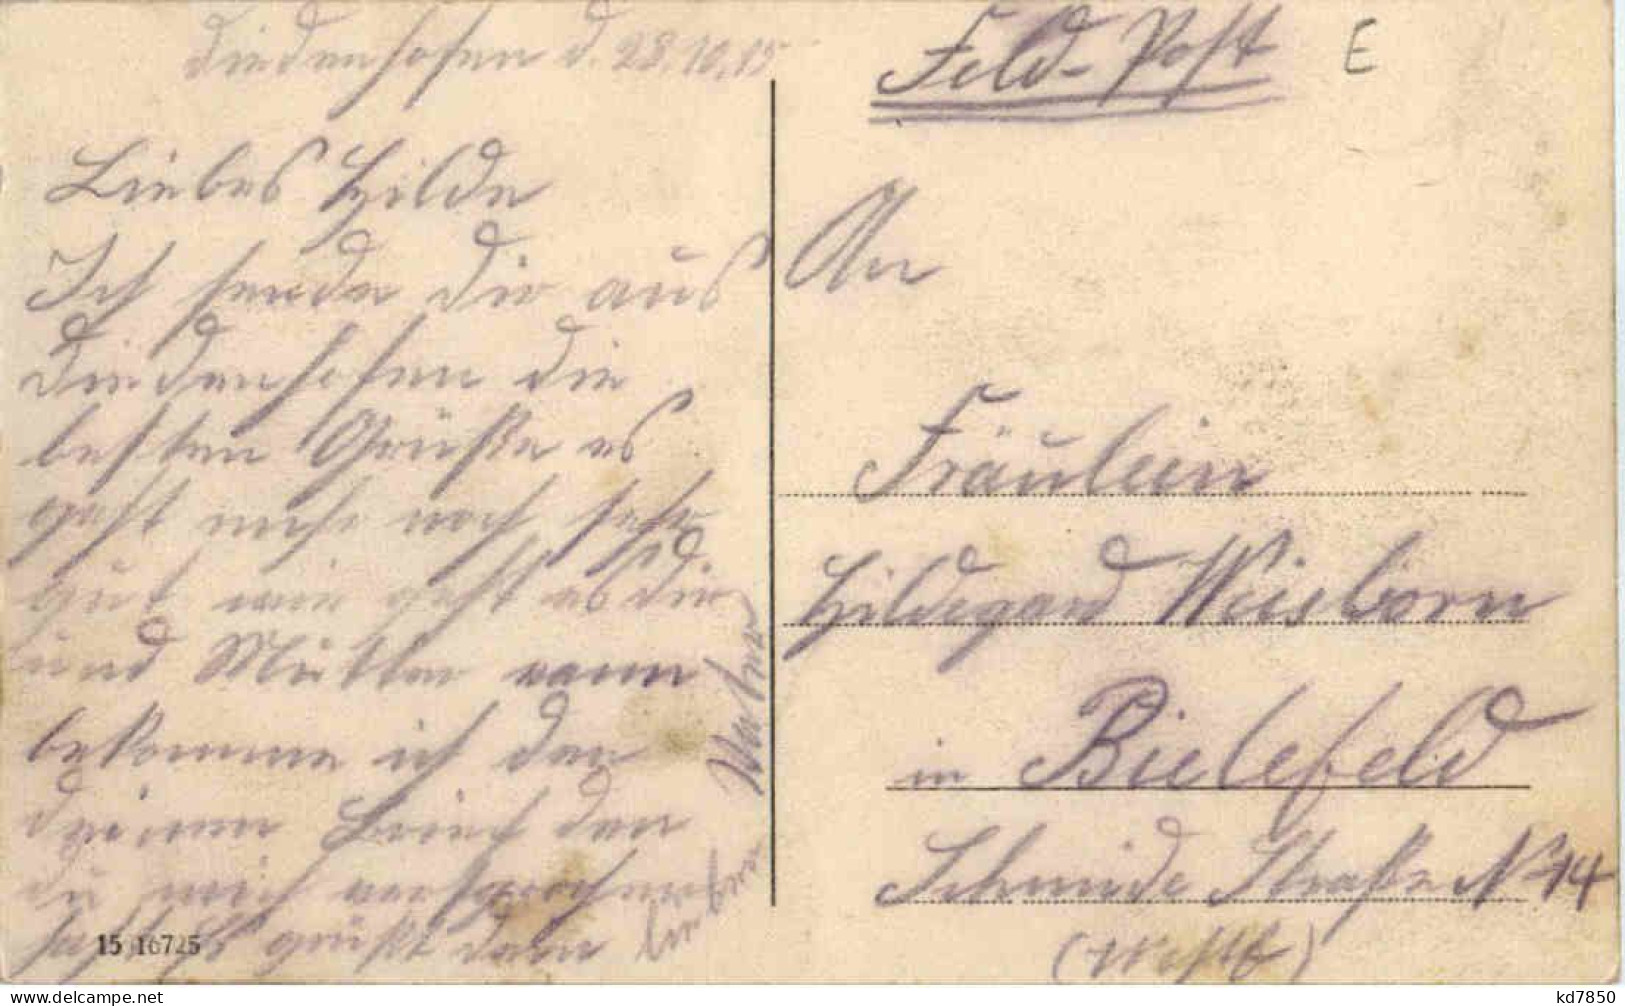 Diedenhofen d. 28.10.15
Liebes Hilde
Ich sende dir aus
Diedenhofen die
besten Grüße es
geht mich noch sehr
gut wie geht es dir
und Mutter wann
bekomme ich den
deinen Brief den
du mich versprochen
hast Es grüßt dein
lieber Vater
15 16725
Feld-Post
E
An
Fräulein
Hildegard Weisborn
in Bielefeld
Schmide Straße № 14
(Westf)
kd7850